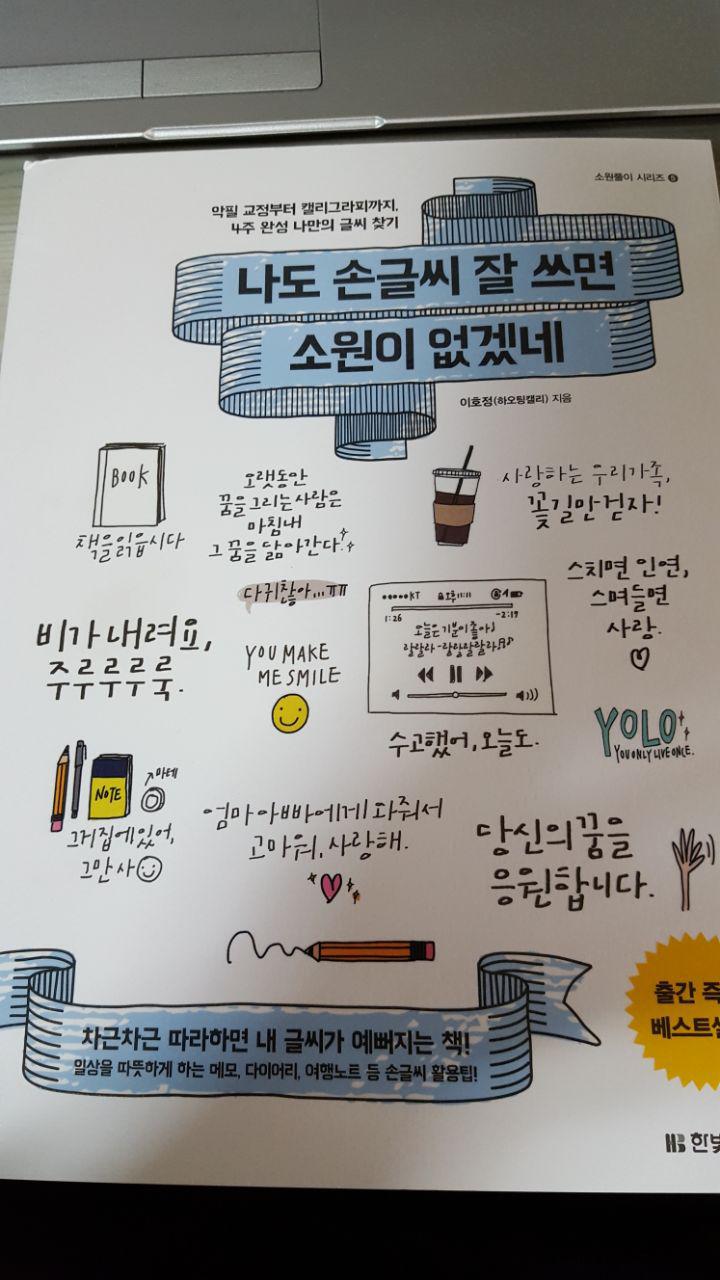 소원풀이 시리즈 5
악필 교정부터 캘리그라피까지,
4주 완성 나만의 글씨 찾기
나도 손글씨 잘 쓰면
소원이 없겠네
이호정(하오팅캘리) 지음
BOOK
책을 읽읍시다
오랫동안
꿈을 그리는 사람은
마침내
그 꿈을 닮아간다.
사랑하는 우리가족,
꽃길만 걷자!
다귀찮아...ㅠㅠ
스치면 인연,
스며들면
사랑.
비가 내려요,
주루루루룩.
YOU MAKE
ME SMILE
KT 오후 11:11
1:26 -2:19
오늘은 기분이 좋아♪
랄랄라-랄랄랄랄라♬♪
수고했어, 오늘도.
YOLO
YOU ONLY LIVE ONCE.
NOTE
마테
그거 집에 있어,
그만 사
엄마 아빠에게 와줘서
고마워, 사랑해.
당신의 꿈을
응원합니다.
차근차근 따라하면 내 글씨가 예뻐지는 책!
일상을 따뜻하게 하는 메모, 다이어리, 여행노트 등 손글씨 활용팁!
출간 즉
베스트
한빛